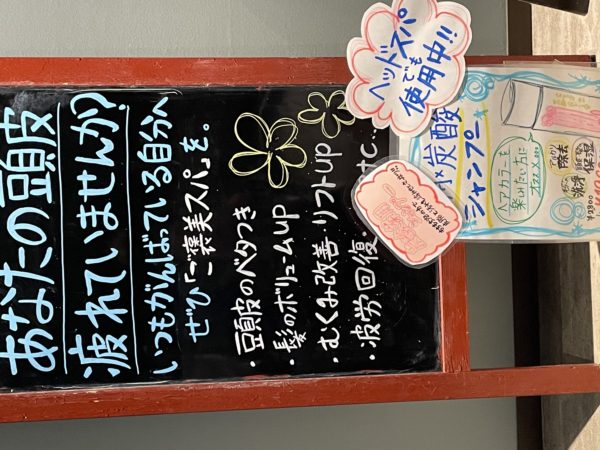 あなたの頭皮
疲れていませんか?
いつもがんばっている自分へ
ぜひ「ご褒美スパ」を。
・頭皮のベタつき
・髪のボリュームup
・むくみ改善・リフトup
・疲労回復・
etc...
ヘッドスパ
でも
使用中!!
炭酸
シャンプー
ヘアカラーを
楽しみたい方に
オススメ
除去
保湿
洗浄
¥2900